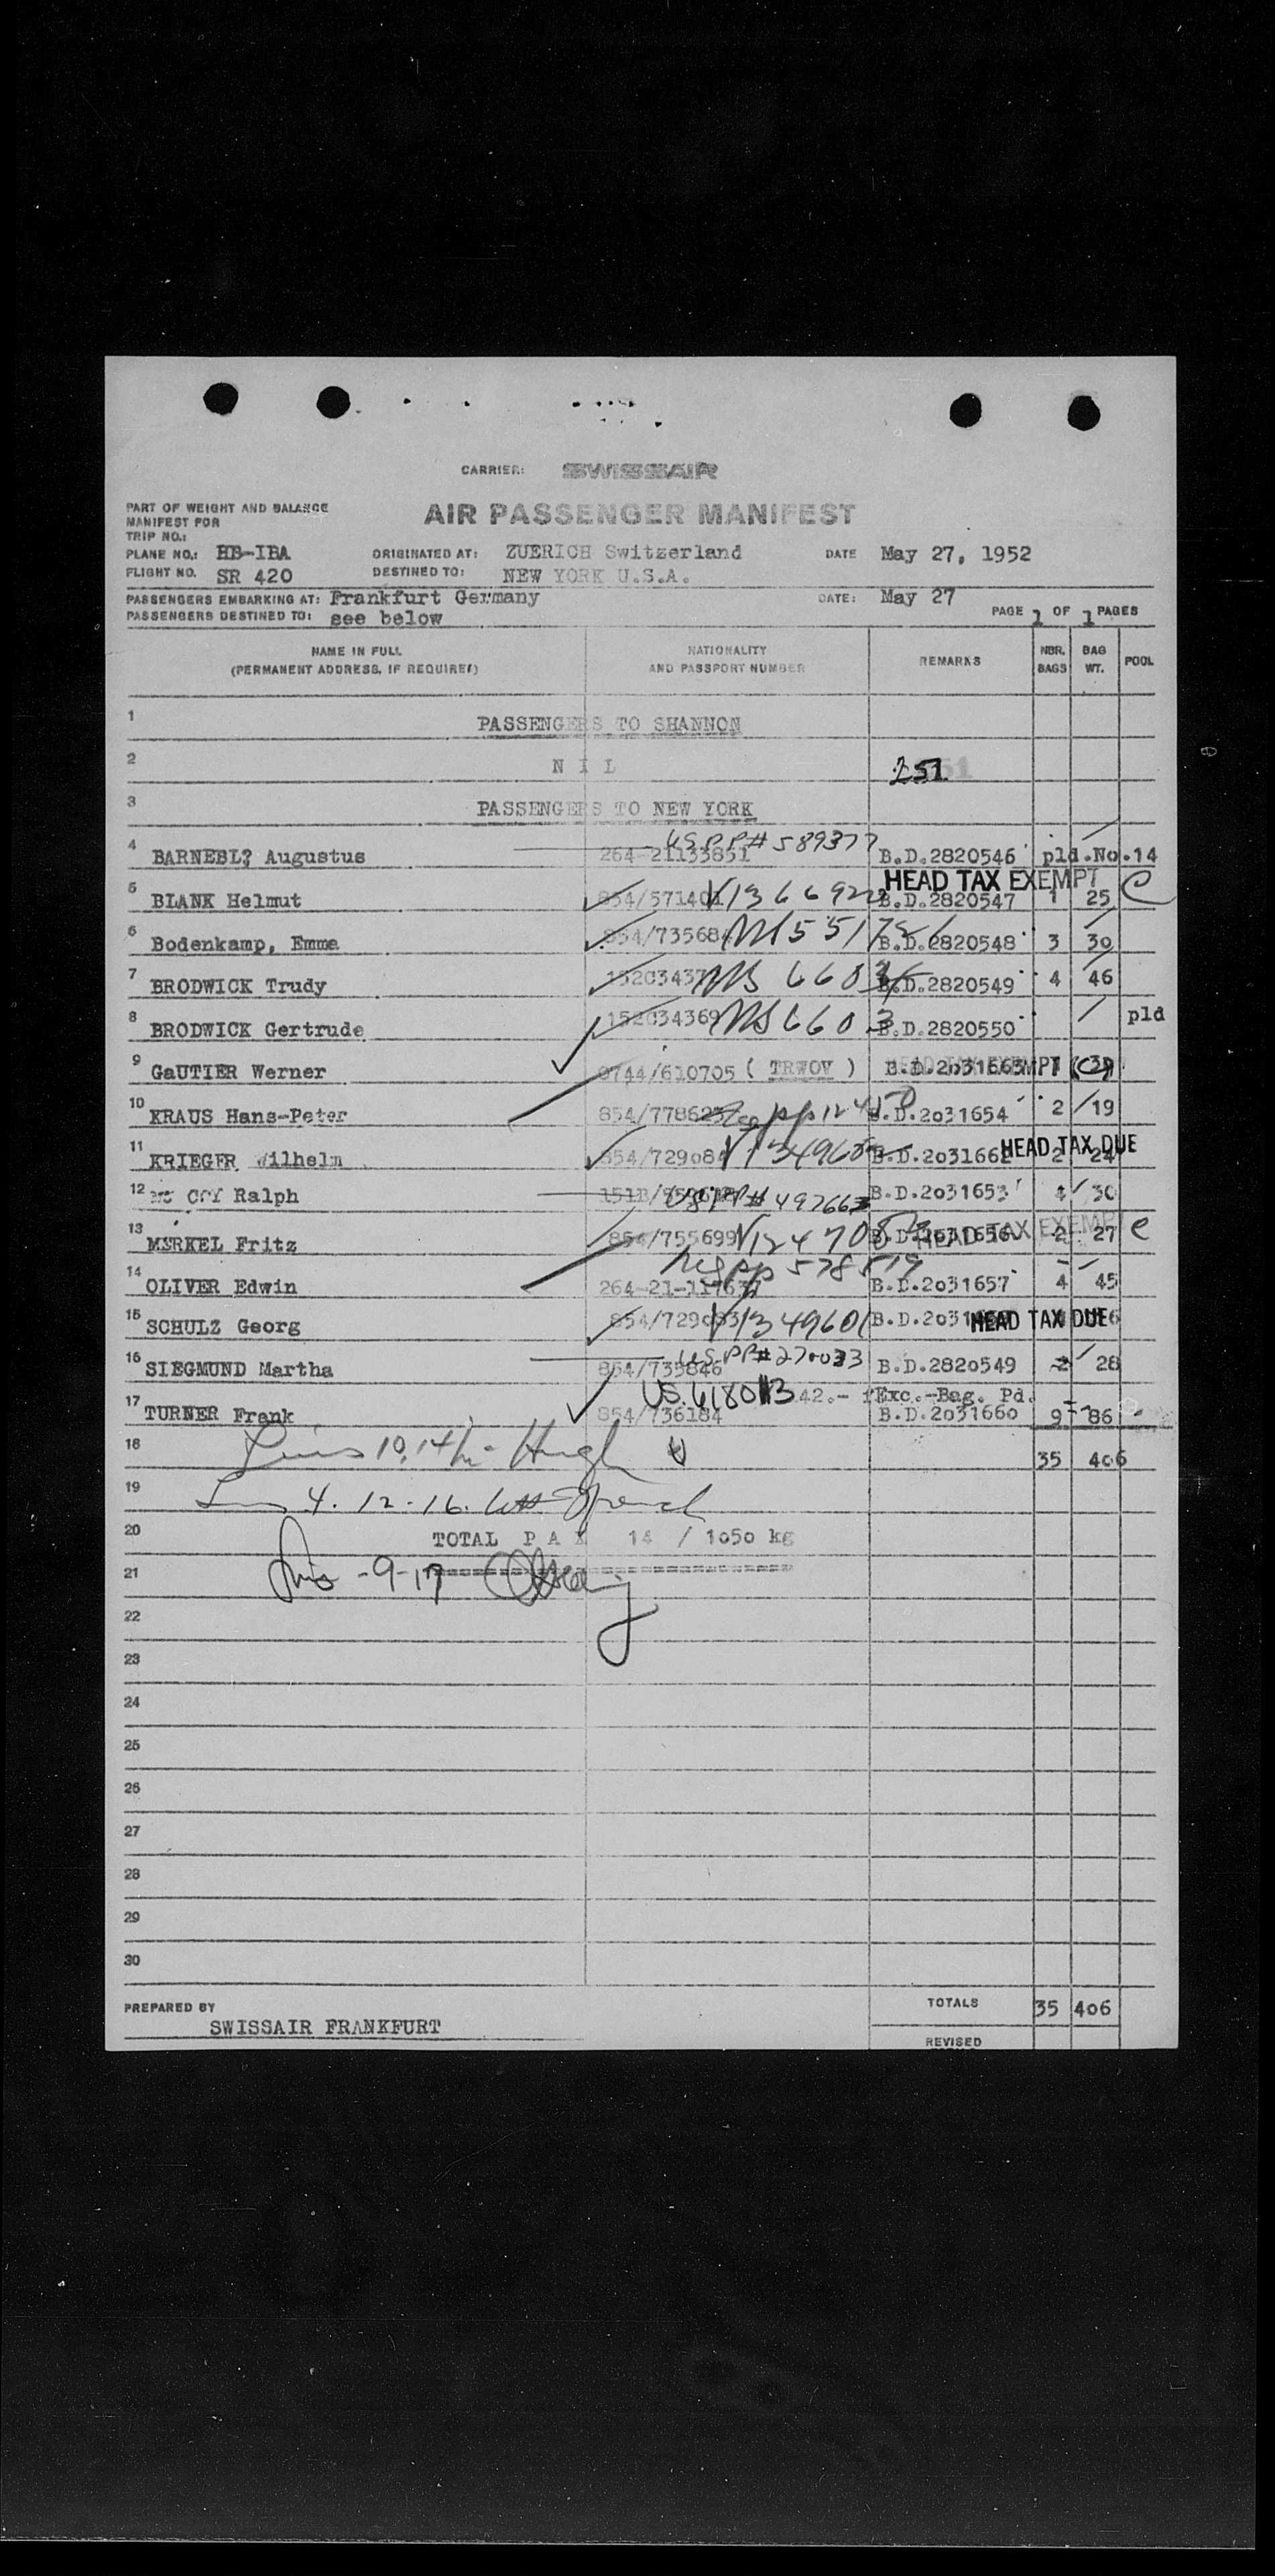 CARRIER: SWISSAIR
PART OF WEIGHT AND BALANCE
MANIFEST FOR
TRIP NO.:
AIR PASSENGER MANIFEST
PLANE NO.: HB-IBA ORIGINATED AT: ZUERICH Switzerland DATE May 27, 1952
FLIGHT NO. SR 420 DESTINED TO: NEW YORK U.S.A.
PASSENGERS EMBARKING AT: Frankfurt Germany DATE: May 27
PASSENGERS DESTINED TO: see below PAGE 1 OF 1 PAGES
NAME IN FULL NATIONALITY NBR. BAG
(PERMANENT ADDRESS, IF REQUIRED) AND PASSPORT NUMBER REMARKS BAGS WT. POOL
1 PASSENGERS TO SHANNON
2 N I L 251
3 PASSENGERS TO NEW YORK
US PP# 589377
4 BARNEBL? Augustus 264-21133851 B.D.2820546 pld.No.14
HEAD TAX EXEMPT C
5 BLANK Helmut B.D.2820547 1 25
6 Bodenkamp, Emma B.D.2820548 3 30
7 BRODWICK Trudy B.D.2820549 4 46
8 BRODWICK Gertrude 152034369 B.D.2820550 pld
9 GaUTIER Werner 0744/610705 ( TRWOV ) B.D.2031663
10 KRAUS Hans-Peter B.D.2031654 2 19
11 KRIEGER Wilhelm 854/729084 V1349602 B.D.2031662 HEAD TAX DUE 2 24
12 COY Ralph US PP# 497663 B.D.2031653 4 30
13 MERKEL Fritz 854/755699 B.D.2031656 HEAD TAX EXEMPT 2 27 C
14 OLIVER Edwin 264-21-117637 B.D.2031657 4 45
15 SCHULZ Georg 854/729083 V1349601 HEAD TAX DUE
US. PP# 270033
16 SIEGMUND Martha 854/735846 B.D.2820549 2 28
42.- Exc.-Bag. Pd.
17 TURNER Frank 854/736184 B.D.2031660 9 86
18 35 406
19
20 TOTAL P A X 14 / 1050 kg
21 -9-17 ================
22
23
24
25
26
27
28
29
30
PREPARED BY TOTALS 35 406
SWISSAIR FRANKFURT
REVISED